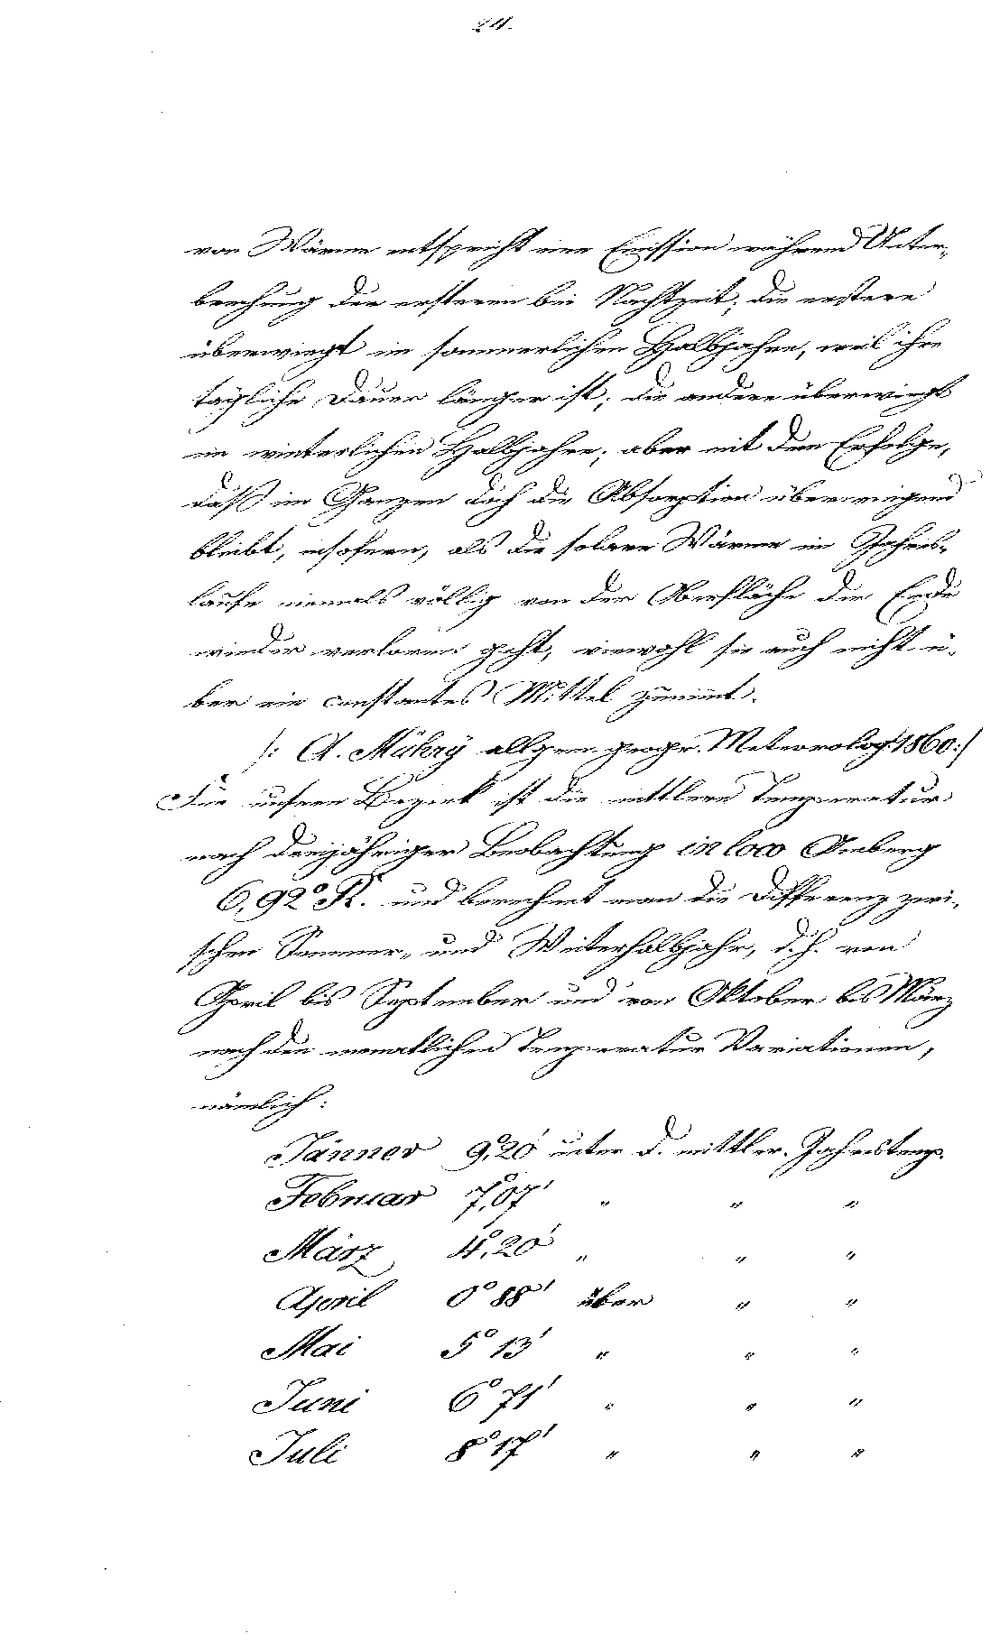 24.
von Wärme entspricht eine Emission während Unter-
brechung der ersteren bei Nachtzeit; die erstere
überwiegt im sommerlichen Halbjahre, weil ihre
tägliche Dauer länger ist; die andere überwiegt
im winterlichen Halbjahre; aber mit dem Erfolge,
daß im Ganzen doch die Absorption überwiegend
bleibt, insofern, als die solare Wärme im Jahres-
laufe niemals völlig von der Oberfläche der Erde
wieder verloren geht, wiewohl sie auch nicht ü-
ber ein constantes Mittel zunimmt.
/: A. Mühry allgem. geogr. Meteorolog. 1860:/
Für unsern Bezirk ist die mittlere Temperatur
nach dreijähriger Beobachtung in loco Amberg
6,92° R. und berechnet man die Differenz zwi-
schen Sommer- und Winterhalbjahr, d. h. von
April bis September und von Oktober bis März
nach den monatlichen Temperatur Variationen,
nämlich:
Jänner 9°,20' unter d. mittler. Jahrestemp.
Februar 7°,07' " " "
März 4°,20' " " "
April 0° 88' über " "
Mai 5° 13' " " "
Juni 6° 71' " " "
Juli 8° 17' " " "